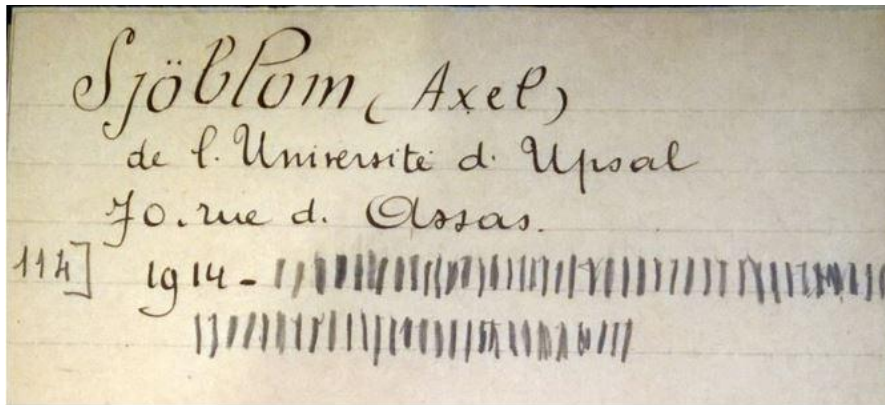 Sjöblom (Axel)
de l. Université d. Upsal
70. rue d. Assas.
114] 1914 -